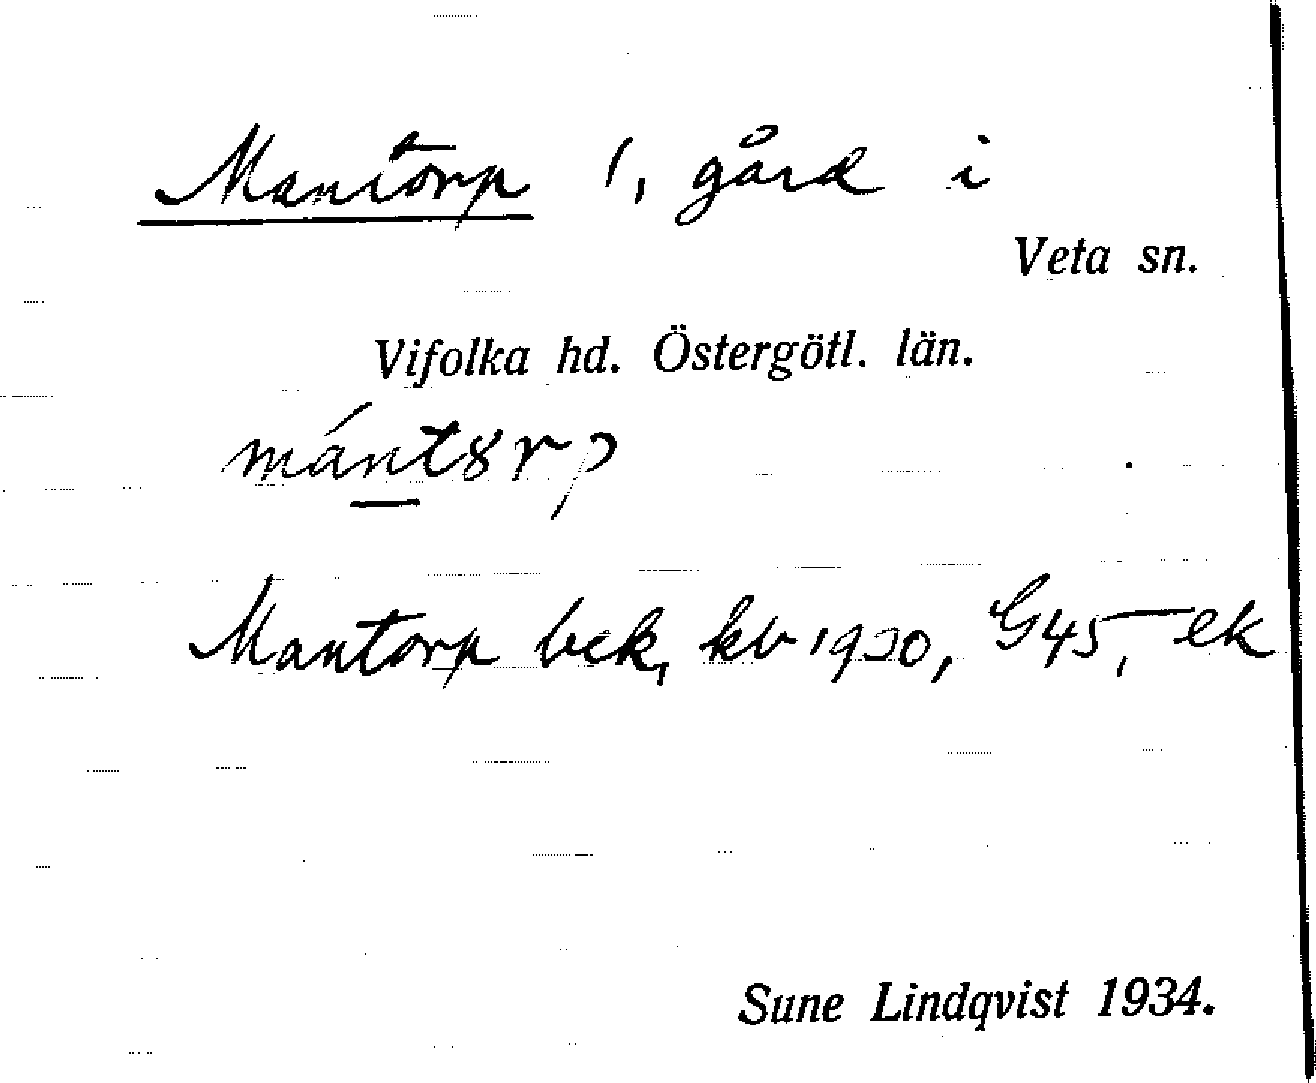 Mantorp 1, gård i
Veta sn.
Vifolka hd. Östergötl. län.
mánt8rp
Mantorp bek, kb 1930, G45, ek
Sune Lindqvist 1934.